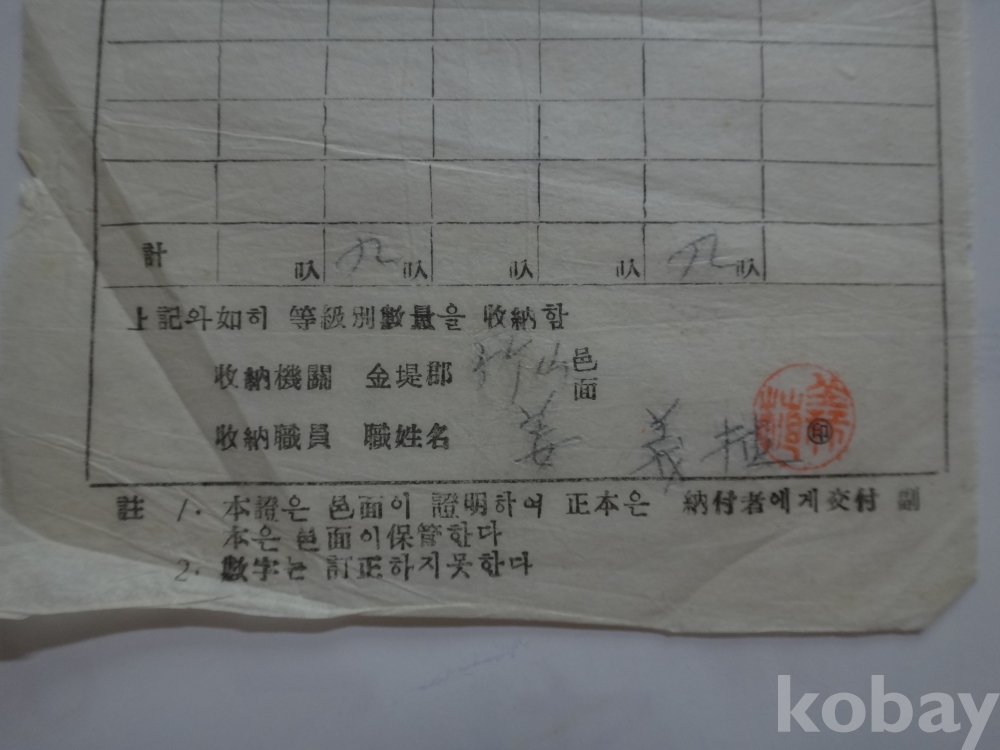 計 叺 九叺 叺 叺 九叺
上記와如히 等級別數量을 收納함
收納機關 金堤郡 竹山 邑面
收納職員 職姓名 姜義植 印
註 1. 本證은 邑面이 證明하여 正本은 納付者에게交付 副
本은 邑面이保管한다
2. 數字는 訂正하지못한다
kobay